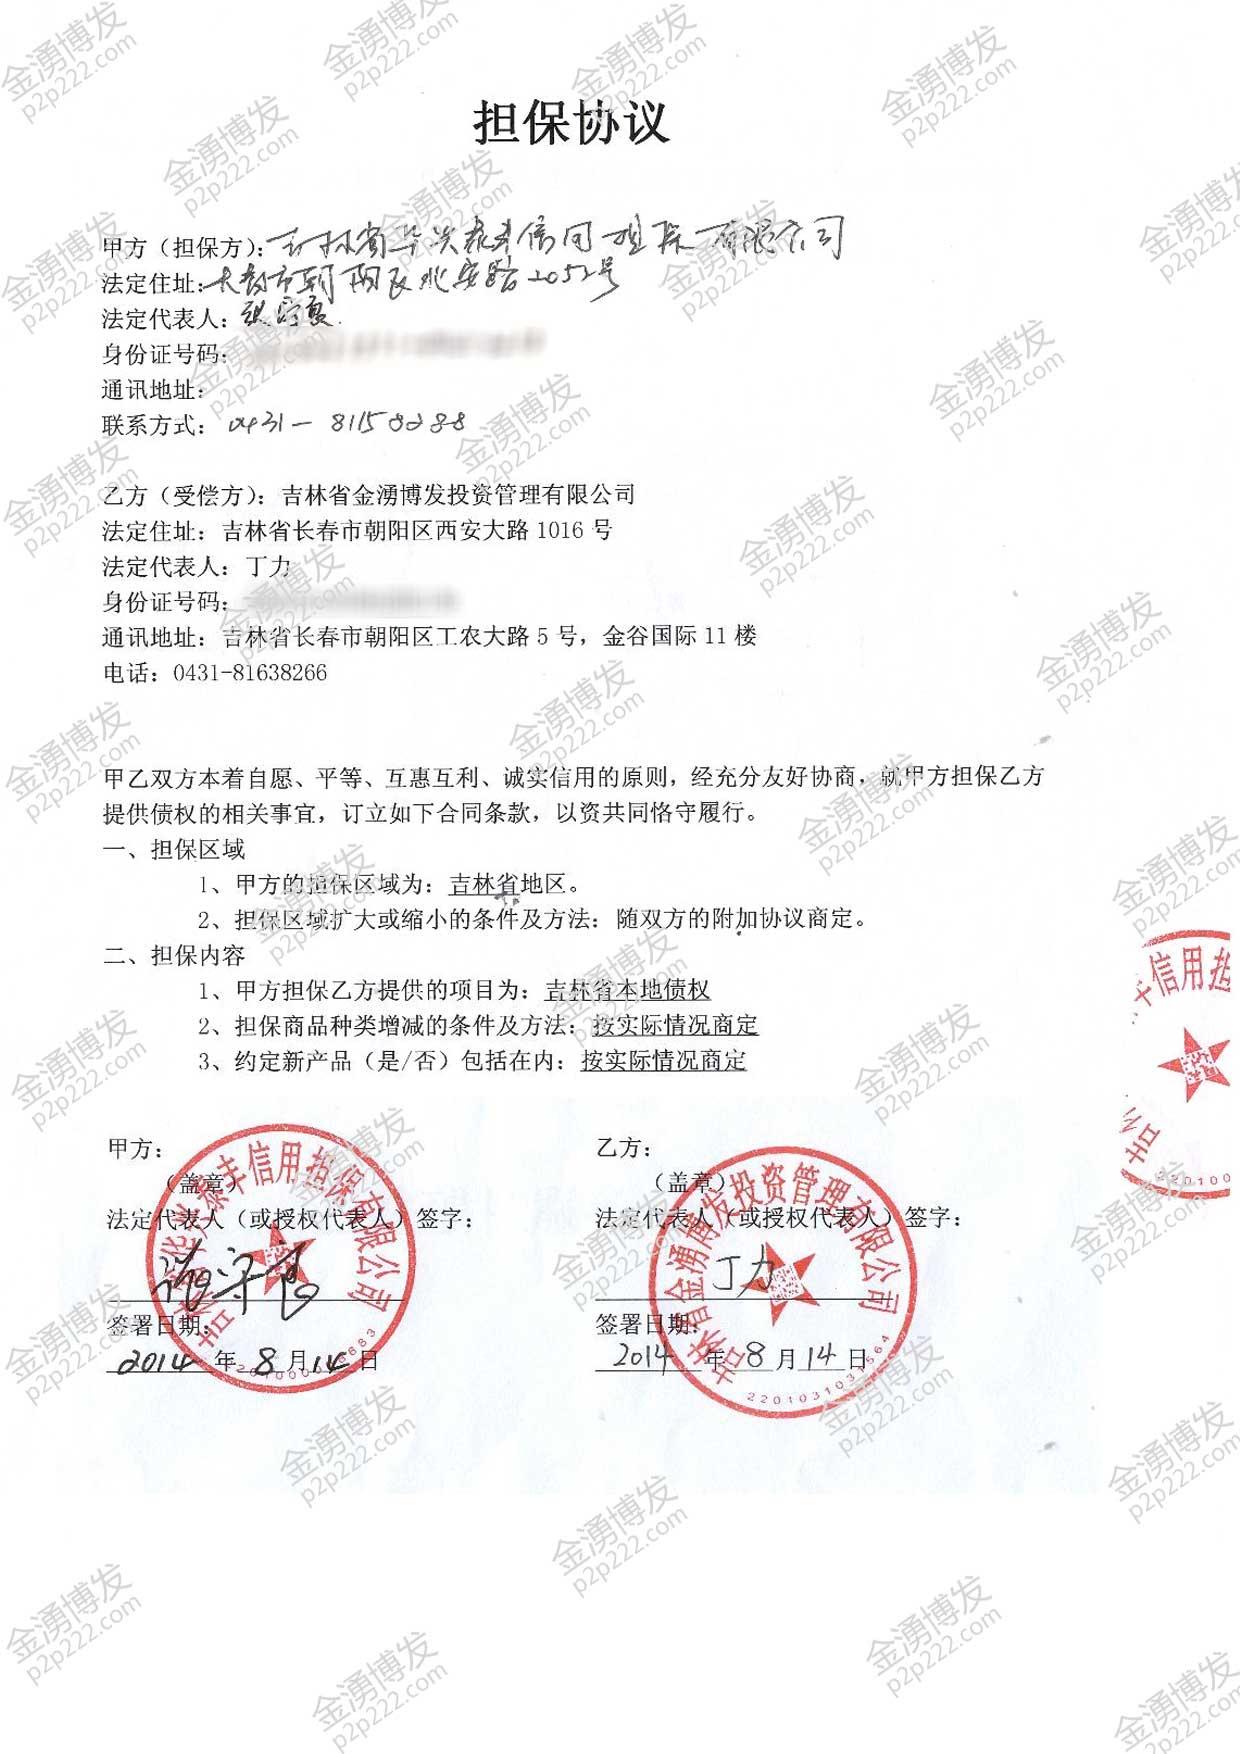 担保协议
甲方（担保方）：吉林省华兴泰丰信用担保有限公司
法定住址：长春市朝阳区北安路2052号
法定代表人：
身份证号码：
通讯地址：
联系方式：0431-81158288
乙方（受偿方）：吉林省金湧博发投资管理有限公司
法定住址：吉林省长春市朝阳区西安大路 1016 号
法定代表人：丁力
身份证号码：
通讯地址：吉林省长春市朝阳区工农大路 5 号，金谷国际 11 楼
电话：0431-81638266
甲乙双方本着自愿、平等、互惠互利、诚实信用的原则，经充分友好协商，就甲方担保乙方
提供债权的相关事宜，订立如下合同条款，以资共同恪守履行。
一、担保区域
1、甲方的担保区域为：吉林省地区。
2、担保区域扩大或缩小的条件及方法：随双方的附加协议商定。
二、担保内容
1、甲方担保乙方提供的项目为：吉林省本地债权
2、担保商品种类增减的条件及方法：按实际情况商定
3、约定新产品（是/否）包括在内：按实际情况商定
甲方： 乙方：
（盖章） （盖章）
法定代表人（或授权代表人）签字： 法定代表人（或授权代表人）签字：
丁力
签署日期： 签署日期：
2014 年 8 月 14 日 2014 年 8 月 14 日
吉林省华兴泰丰信用担保有限公司
吉林省金湧博发投资管理有限公司
2201031031564
丰信用担
吉
220100
金湧博发
p2p222.com